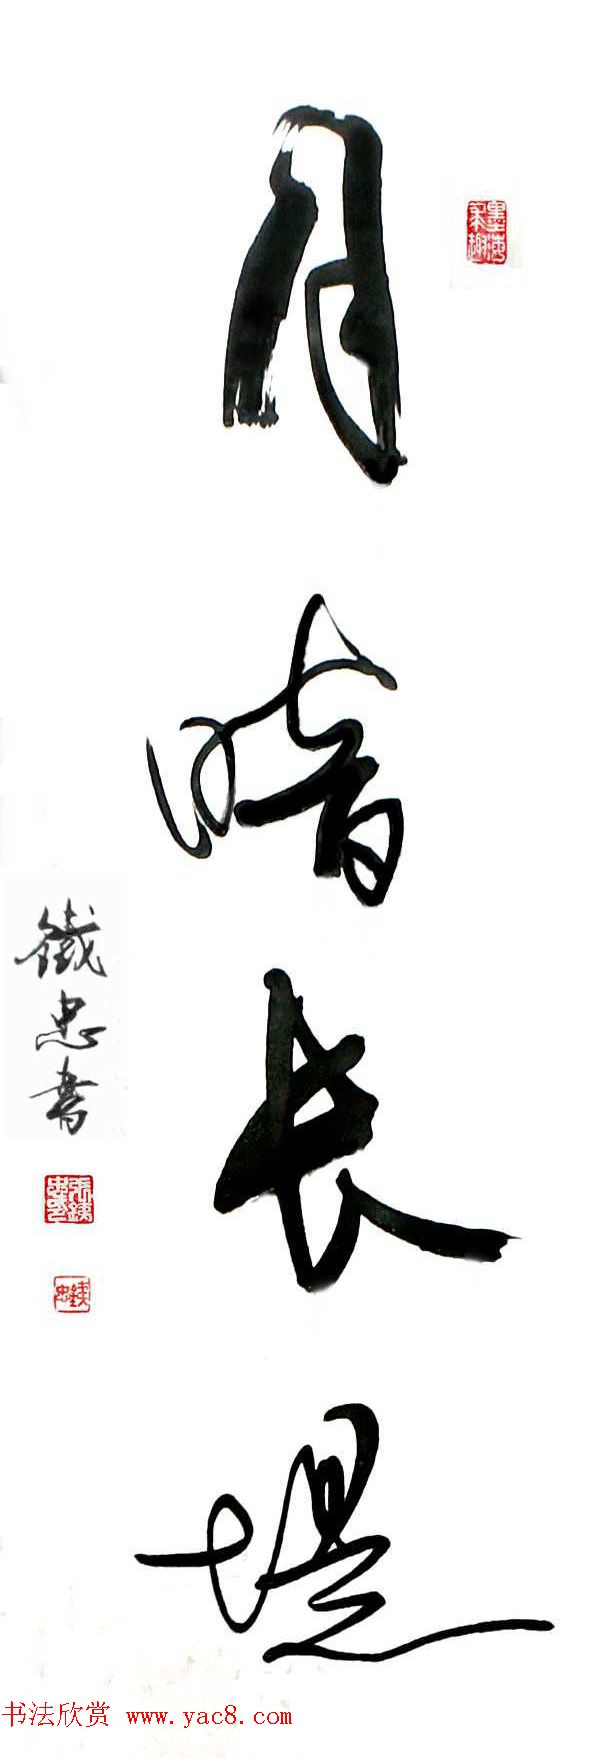 月暗长堤
铁忠书
书法欣赏 www.yac8.com